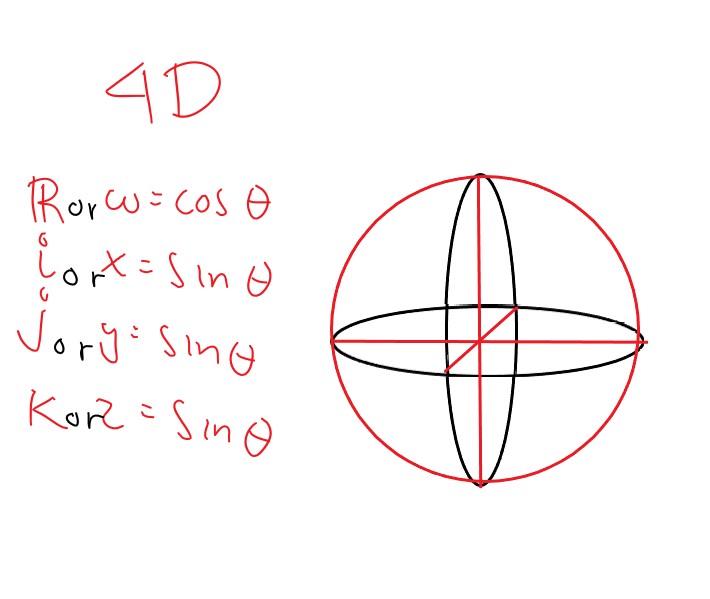 4D
ℝ or ω = cos θ
i or x = sin θ
j or y = sin θ
K or z = sin θ